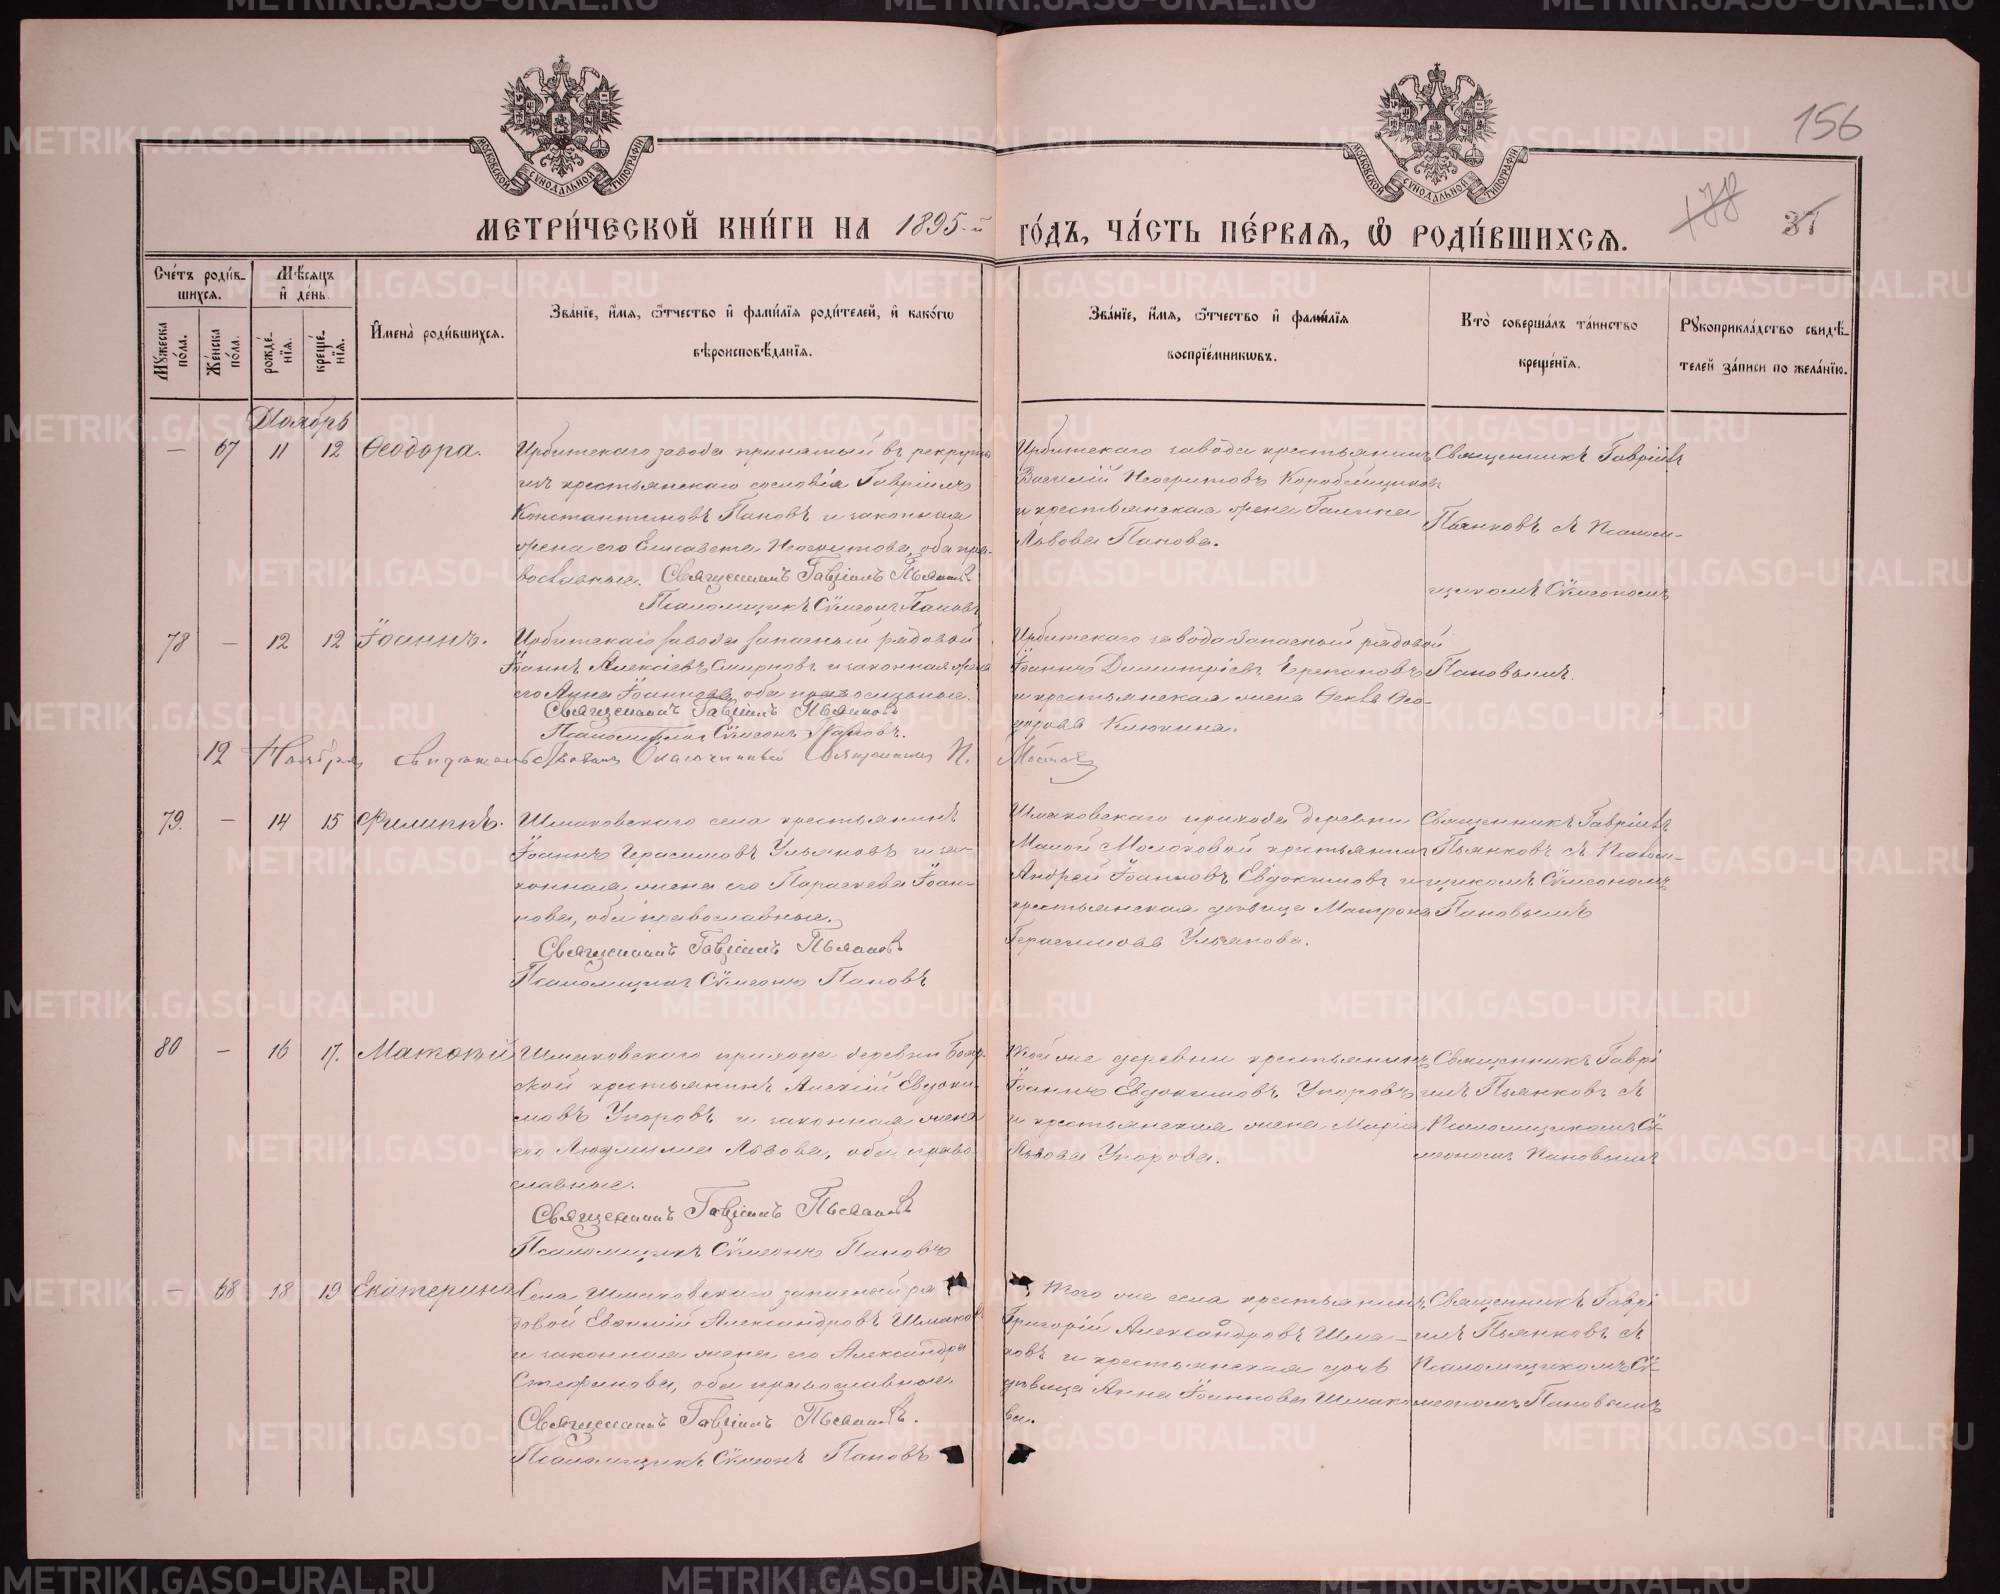 156
МЕТРИ́ЧЕСКОЙ КНИ́ГИ НА 1895-й ГО́ДЪ, ЧА́СТЬ ПЕ́РВАЯ, Ѡ РОДИ́ВШИХСЯ.
37
МОСКОВСКОЙ СѴНОДАЛЬНОЙ ТИПОГРАФІИ
МОСКОВСКОЙ СѴНОДАЛЬНОЙ ТИПОГРАФІИ
Сче́тъ роди́в-
шихся.
Мѣ́сяцъ
и де́нь.
Му́жеска
по́ла.
Же́нска
по́ла.
рожде́-
нїя.
креще́-
нїя.
Имена̀ роди́вшихся.
Зва́нїе, и́мя, ѻ́тчество и фами́лїя роди́телей, и како́гѡ
вѣроисповѣ́данїя.
Зва́нїе, и́мя, ѻ́тчество и фами́лїя
воспрїе́мникѡвъ.
Кто̀ соверша́лъ та́инство
креще́нїя.
Рꙋкоприкла́дство свидѣ́-
телей за́писи по жела́нїю.
Ноябрь
— 67 11 12 Ѳеодора.
Ирбитскаго завода принятый въ рекруты
изъ крестьянскаго сословія Гавріилъ
Константиновъ Пановъ и законная
жена его Елисавета Неофитова, оба пра-
вославные. Священникъ Гавріилъ Пьянковъ
Псаломщикъ Сѵмеонъ Пановъ
Ирбитскаго завода крестьянинъ
Василій Неофитовъ Коробейщиковъ
и крестьянская жена Галина
Львова Панова.
Священникъ Гавріилъ
Пьянковъ съ Псалом-
щикомъ Сѵмеономъ
Пановымъ.
78 — 12 12 Іоаннъ.
Ирбитскаго завода запасный рядовой
Іоаннъ Алексіевъ Смирновъ и законная жена
его Анна Іоаннова, оба православные.
Священникъ Гавріилъ Пьянковъ
Псаломщикъ Сѵмеонъ Пановъ.
Ирбитскаго завода запасный рядовой
Іоаннъ Димитріевъ Черепановъ
и крестьянская жена Ѳекла Ѳео-
дорова Клюкина.
12 Ноября свидетельствовалъ Благочинный Священникъ П.
79. — 14 15 Филиппъ.
Шмаковскаго села крестьянинъ
Іоаннъ Герасимовъ Ульяновъ и за-
конная жена его Параскева Іоан-
нова, оба православные.
Священникъ Гавріилъ Пьянковъ
Псаломщикъ Сѵмеонъ Пановъ
Шмаковскаго прихода деревни
Малой Молоковой крестьянинъ
Андрей Іоанновъ Евдокимовъ и
крестьянская дѣвица Матрона
Герасимова Ульянова.
Священникъ Гавріилъ
Пьянковъ съ Псалом-
щикомъ Сѵмеономъ
Пановымъ
80 — 16 17. Матѳій
Шмаковскаго прихода деревни Бояр-
ской крестьянинъ Алексій Евдоки-
мовъ Упоровъ и законная жена
его Людмила Львова, оба право-
славные.
Священникъ Гавріилъ Пьянковъ
Псаломщикъ Сѵмеонъ Пановъ
Той же деревни крестьянинъ
Іоаннъ Евдокимовъ Упоровъ
и крестьянская жена Марія
Львова Упорова.
Священникъ Гаврі-
илъ Пьянковъ съ
Псаломщикомъ Сѵ-
меономъ Пановымъ
— 68 18 19 Екатерина
Села Шмаковскаго запасный ря-
довой Евѳимій Александровъ Шмаковъ
и законная жена его Александра
Стефанова, оба православные.
Священникъ Гавріилъ Пьянковъ.
Псаломщикъ Сѵмеонъ Пановъ
Того же села крестьянинъ
Григорій Александровъ Шма-
ковъ и крестьянская дочь
дѣвица Анна Іоаннова Шмако-
ва.
Священникъ Гаврі-
илъ Пьянковъ съ
Псаломщикомъ Сѵ-
меономъ Пановымъ
METRIKI.GASO-URAL.RU